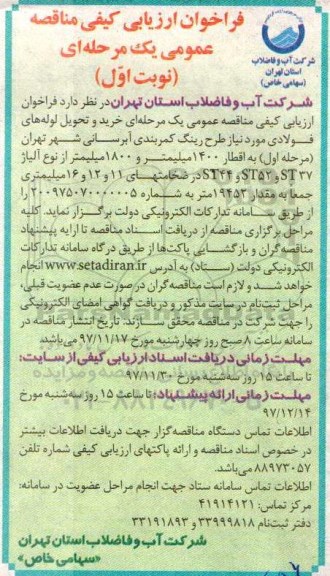 فراخوان ارزیابی کیفی مناقصه
عمومی یک مرحله‌ای
(نوبت اوّل)
شرکت آب و فاضلاب
استان تهران
(سهامی خاص)
شرکت آب و فاضلاب استان تهران در نظر دارد فراخوان
ارزیابی کیفی مناقصه عمومی یک مرحله‌ای خرید و تحویل لوله‌های
فولادی مورد نیاز طرح رینگ کمربندی آبرسانی شهر تهران
(مرحله اول) به اقطار ۱۴۰۰ میلیمتر و ۱۸۰۰ میلیمتر از نوع آلیاژ
ST۳۷ و ST۵۲ و ST۴۴ در ضخامتهای ۱۱ و ۱۲ و ۱۶ میلیمتری
جمعا به مقدار ۱۹۴۵۳ متر به شماره ۲۰۰۹۷۵۰۷۰۰۰۰۰۰۵ را
از طریق سامانه تدارکات الکترونیکی دولت برگزار نماید. کلیه
مراحل برگزاری مناقصه از دریافت اسناد مناقصه تا ارایه پیشنهاد
مناقصه‌گران و بازگشایی پاکت‌ها از طریق درگاه سامانه تدارکات
الکترونیکی دولت (ستاد) به آدرس www.setadiran.ir انجام
خواهد شد و لازم است مناقصه گران در صورت عدم عضویت قبلی،
مراحل ثبت‌نام در سایت مذکور و دریافت گواهی امضای الکترونیکی
را جهت شرکت در مناقصه محقق سازند. تاریخ انتشار مناقصه در
سامانه ساعت ۸ صبح روز چهارشنبه مورخ ۹۷/۱۱/۱۷ می‌باشد.
مهلت زمانی دریافت اسناد ارزیابی کیفی از سایت:
تا ساعت ۱۵ روز سه‌شنبه مورخ ۹۷/۱۱/۳۰
مهلت زمانی ارائه پیشنهاد: تا ساعت ۱۵ روز سه‌شنبه مورخ
۹۷/۱۲/۱۴
اطلاعات تماس دستگاه مناقصه‌گزار جهت دریافت اطلاعات بیشتر
در خصوص اسناد مناقصه و ارائه پاکتهای ارزیابی کیفی شماره تلفن
۸۸۹۷۳۰۵۷ می‌باشد.
اطلاعات تماس سامانه ستاد جهت انجام مراحل عضویت در سامانه:
مرکز تماس: ۴۱۹۱۴۱۲۱
دفتر ثبت‌نام ۳۳۹۹۹۸۱۸ و ۳۳۱۹۱۸۹۳
شرکت آب و فاضلاب استان تهران
«سهامی خاص»